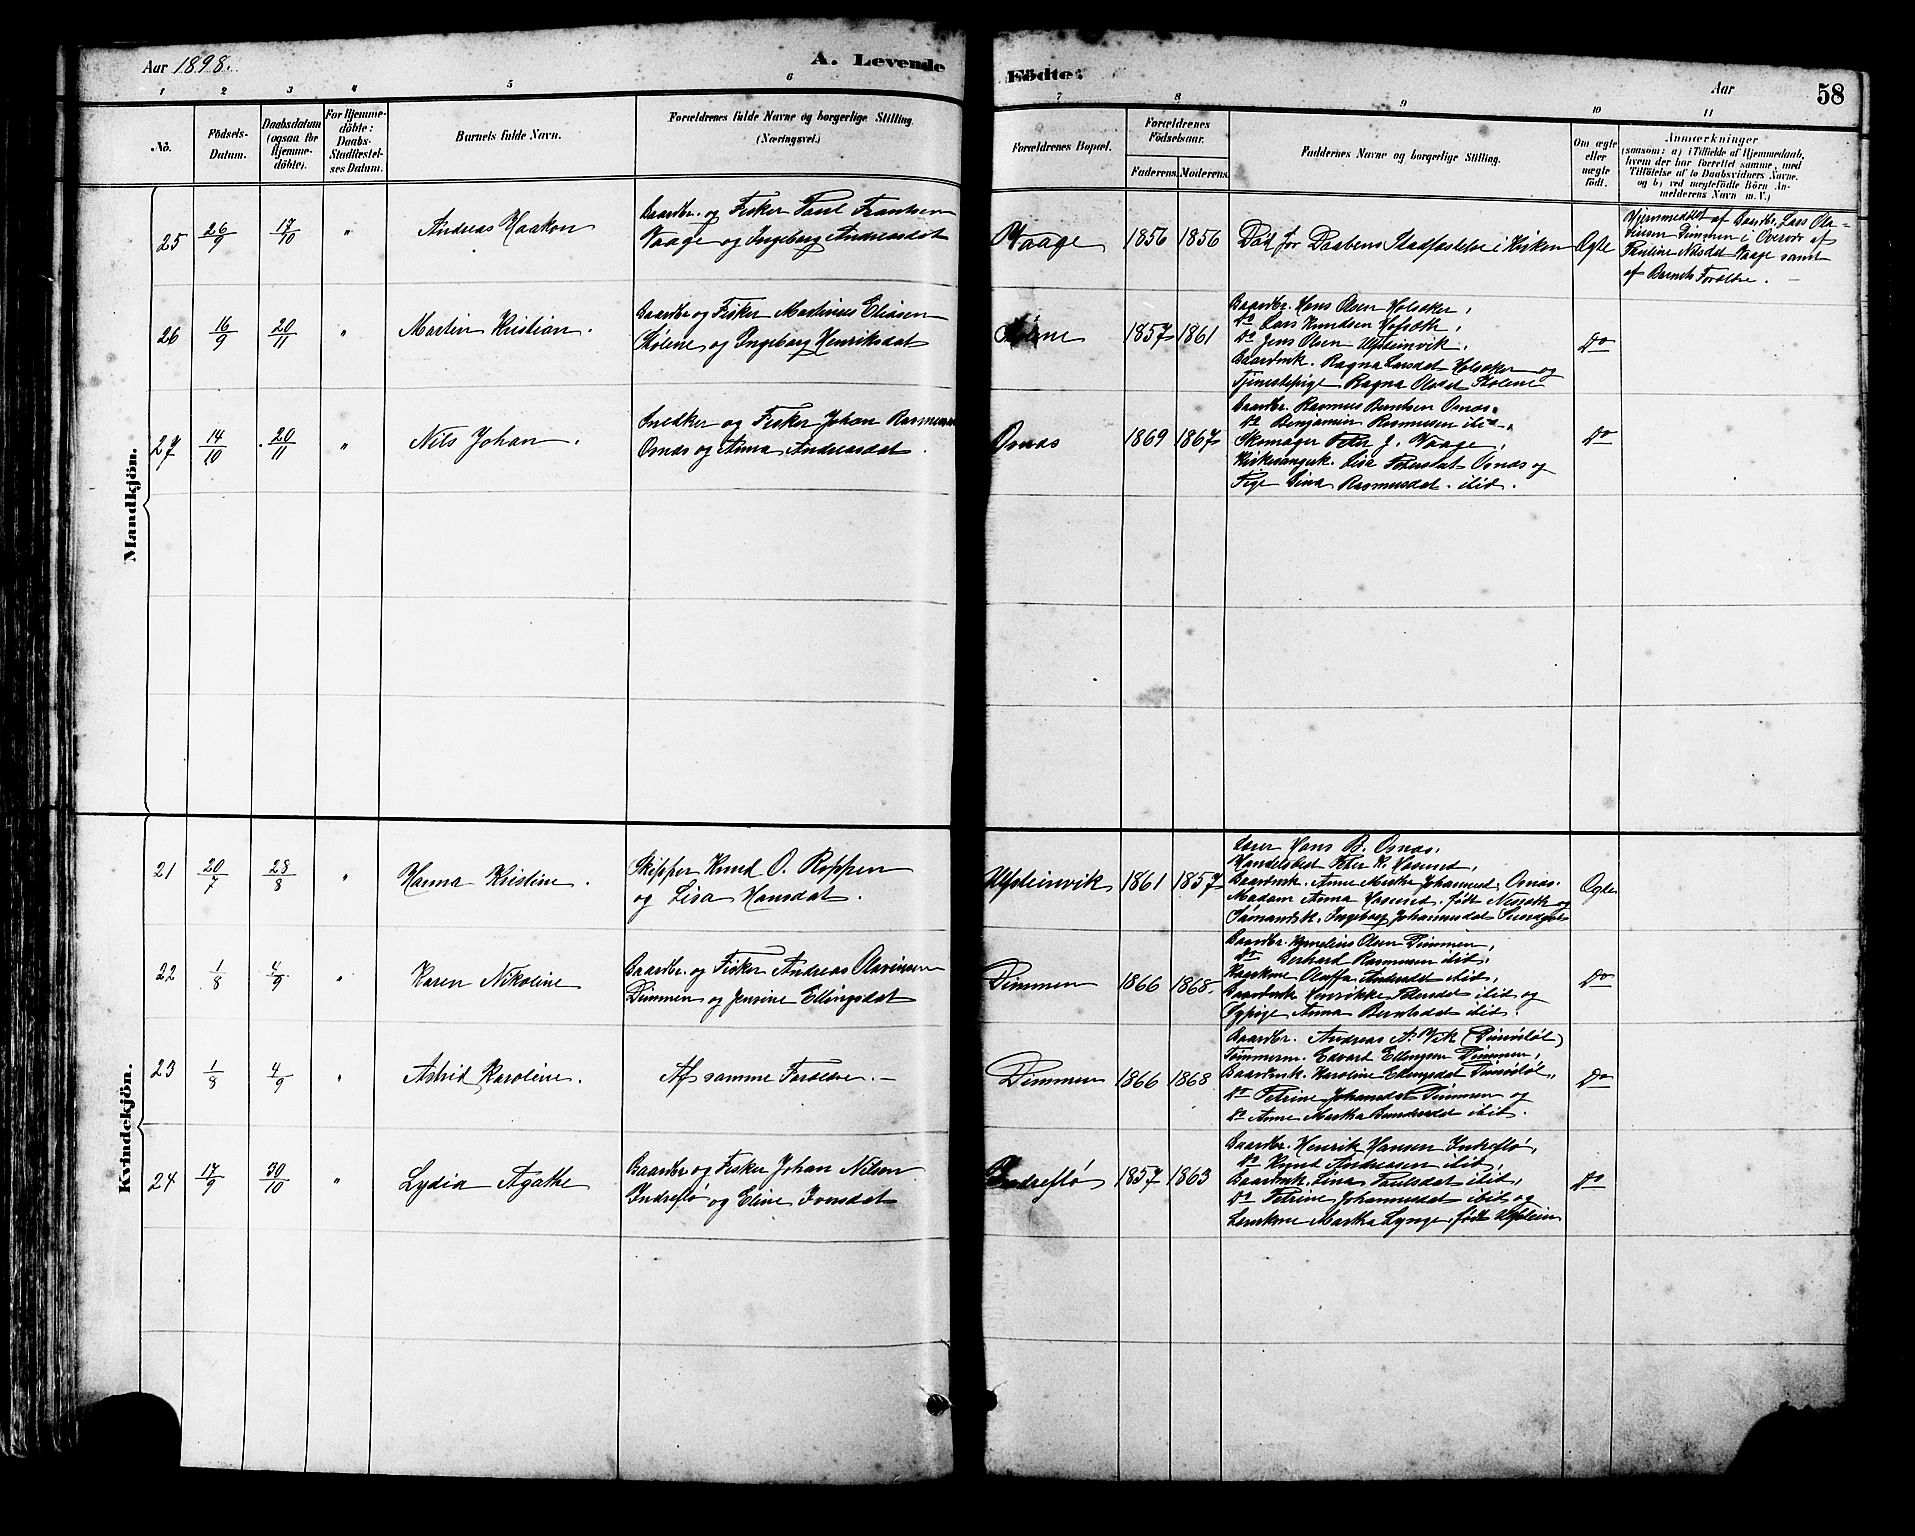 Aar 1898.
A. Levende
Födte:
Aar
58
1
2
3
4
5
6
7
8
9
10
11
No.
Födsels-
Datum.
Daabsdatum
(ogsaa for
Hjemme-
döbte).
For Hjemme-
döbte:
Daabs-
Stadfæstel-
ses Datum.
Barnets fulde Navn.
Forældrenes fulde Navne og borgerlige Stilling
(Næringsvei.)
Forældrenes Bopæl.
Forældrenes
Födselsaar.
Faderens.
Moderens.
Faddernes Navne og borgerlige Stilling.
Om ægte
eller
uægte
født.
Anmærkninger
(saasom: a) i Tilfælde af Hjemmedaab,
hvem der har forrettet samme, med
Tilföielse af to Daabsvidners Navne.
og b) ved uægtefödte Börn An-
melderens Navn m. V.)
Mandkjön.
25
26/9
17/10
"
Andreas Haakon
Gaardbr. og Fisker Paul Frantsen
Vaage og Ingeborg Andreasdat
Vaage
1856
1856
Död før Daabens Stadfæstelse i Kirken
Ægte
Hjemmedöbt af Gaardbr. Lars Ola-
visen Dimmen i Overvær af
Pauline Nilsdat Vaage samt
af Barnets Forældre. —
26
16/9
20/11
"
Martin Kristian.
Gaardbr og Fisker Martinus Eliasen
Skolene og Ingeborg Henriksdat
1857
1861
Gaardbr. Hans Olsen Holsæker,
Do Lars Knudsen Hofsæth,
Do Jens Olsen Ulfsteinvik,
Gaardmk. Ragna Larsdat Holsæker og
Tjenestepige Ragna Olsdat Skolene
Do
27
14/10
20/11
"
Nils Johan.
Snedker og Fisker Johan Rasmussen
Osnæs og Anna Andreasdat.
Osnæs
1869
1867
Gaardbr. Rasmus Berntsen Osnæs,
Do Benjamin Rasmussen ibid,
Skomager Peter J. Vaage,
Kirkesangerk. Lise Petersdat Osnæs og
Pige Lina Rasmusdat ibid.
Do
Kvindekjön.
21
20/7
28/8
"
Hanna Kristine.
Skipper Knud O. Røppen
og Lisa Hansdat.
Ulfsteinvik
1861
1857
Lærer Hans B. Osnæs,
Handelsbet Peter K. Hasund,
Gaardmk. Anne Marthe Johannesd. Osnæs.
Madam Anna Hasund, født og
Sømandsk. Ingeborg Johannesdat
Ægte
22
1/8
4/9
"
Karen Nikoline
Gaardbr. og Fisker Andreas Olavinssen
Dimmen og Jensine Ellingsdat
Dimmen
1866
1868.
Gaardbr. Kornelius Olsen Dimmen,
Do Gerhard Rasmussen ibid,
Kaarkone Oluffa Andersdt ibid,
Gaardmk Henrikke Petersdat ibid og
Sypige Anna Berntsdat ibid.
Do
23
1/8
4/9
"
Astrid Karoline.
Af samme Forældre. —
Dimmen
1866
1868
Gaardbr. Andreas N.
Tömmerm. Edvart Ellingsen Dimmen,
Gaardmk. Karoline Ellingsdat
Do Petrine Johansdat Dimmen og
Do Anne Martha ibid.
Do
24
17/9
30/10
"
Lydia Agathe
Gaardbr og Fisker Johan Nilsen
Indreflø og Eline Jonsdat
Indreflø
1857
1863
Gaardbr. Henrik Hansen Indreflø,
Do Knud Andreasen ibid,
Gaardmk. Lina Paulsdat ibid,
Do Petrine Johannesdat ibid og
Martha Lynge, født Ulfstein
Do